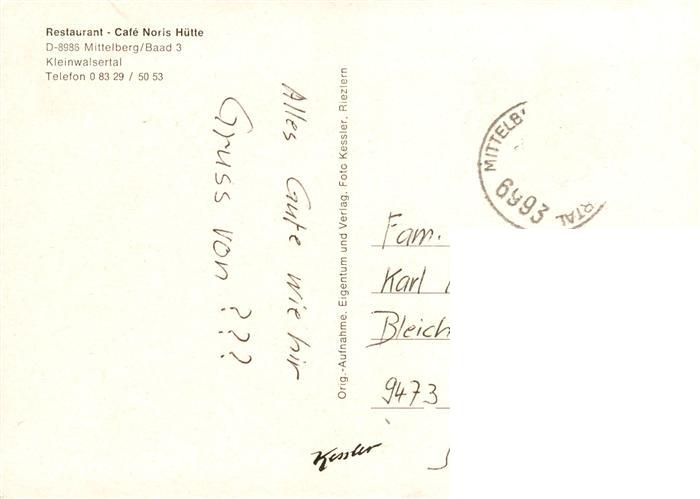 Restaurant - Café Noris Hütte
D-8986 Mittelberg/Baad 3
Kleinwalsertal
Telefon 0 83 29 / 50 53
Alles Gute wie hir
Gruss von ???
Orig.-Aufnahme. Eigentum und Verlag. Foto Kessler, Riezlern
MITTELB
6993
RTAL
Fam.
Karl
Bleich
9473
Kessler